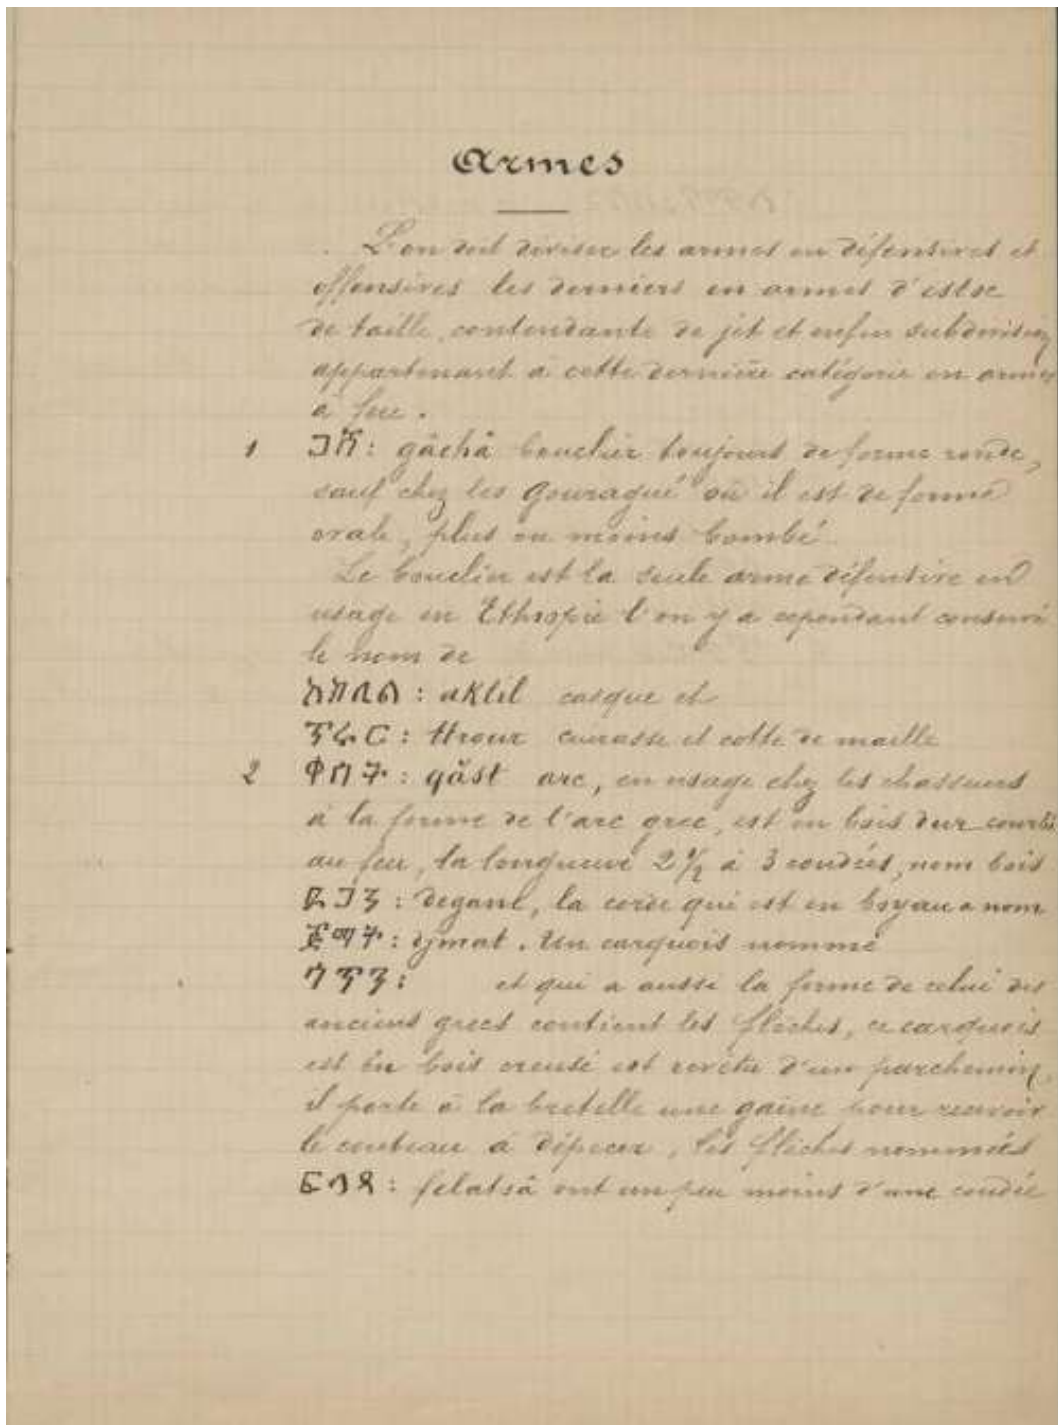 Armes
L'on doit diviser les armes en défensives et
offensives les derniers en armes d'estoc
de taille, contondante de jet et enfin subdivisez
appartenant à cette dernière catégorie en armes
à feu.
1 ጋሻ: gâchâ bouclier toujours de forme ronde,
sauf chez les Gouragué où il est de forme
ovale, plus ou moins bombé
Le bouclier est la seule arme défensive en
usage en Ethiopie l'on y a cependant conservé
le nom de
አክሊል: aklil casque et
ጥሩር: ttrour cuirasse et cotte de maille
2 ቀስት: qăst arc, en usage chez les chasseurs
a la forme de l'arc grec, est en bois dur courbé
au feu, la longueur 2 1/2 à 3 coudées, nom bois
ደጋን: degane, la corde qui est en boyau a nom
ጅማት: djmat. Un carquois nommé
et qui a aussi la forme de celui des
anciens grecs contient les flèches, ce carquois
est en bois creusé est revêtu d'un parchemin,
il porte à la bretelle une gaine pour recevoir
le couteau à dépecer, les flèches nommées
ፍላፃ: felatsâ ont un peu moins d'une coudée